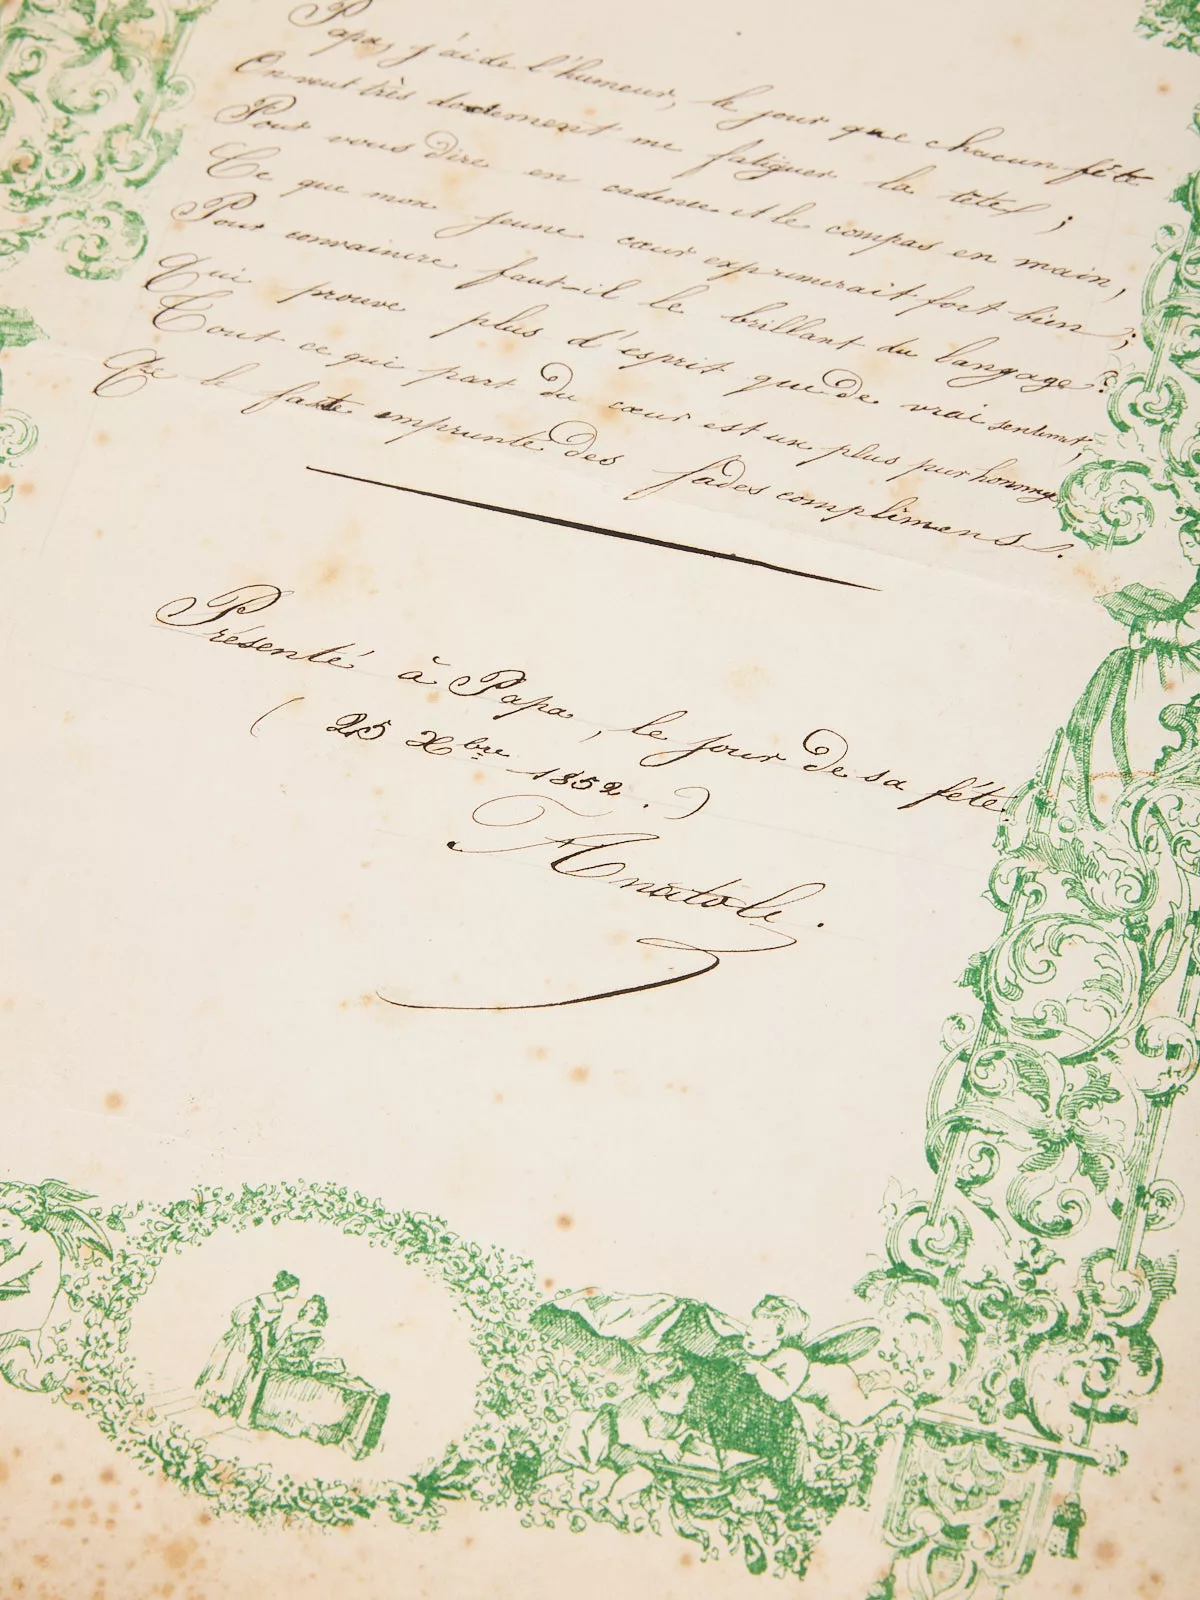 Papa, j'ai de l'humeur, le jour que chacun fête
On veut très doctement me fatiguer la tête ;
Pour vous dire en cadence et le compas en main,
Ce que mon jeune cœur exprimerait fort bien ;
Pour convaincre faut-il le brillant du langage ?
Qui prouve plus d'esprit que de vrai sentiment ;
Tout ce qui part du cœur est un plus pur hommage
Que le faste emprunté des fades complimens.
Présenté à Papa, le jour de sa féte.
( 25 Xbre 1852 . )
Anatole.